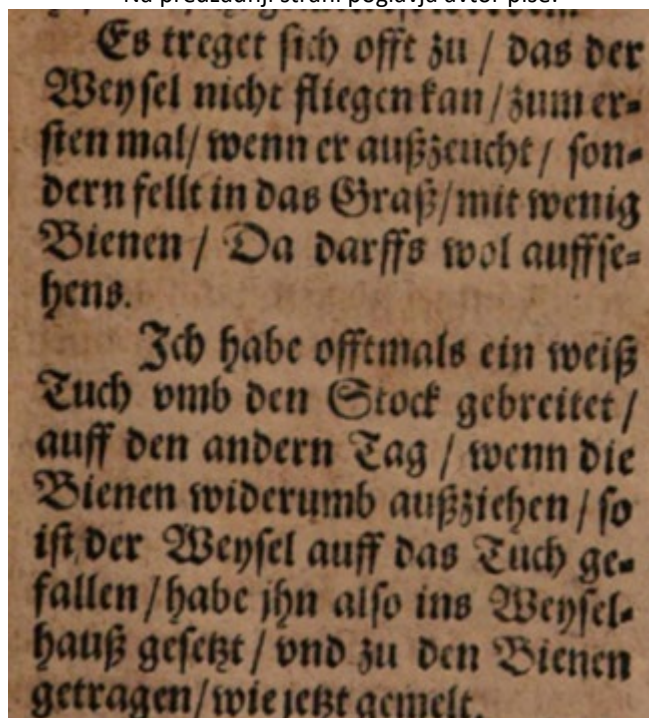 Na predzadnji strani poglavja avtor piše:
Es treget sich offt zu / das der
Weysel nicht fliegen kan / zum er⸗
sten mal / wenn er außzeucht / son⸗
dern fellt in das Graß / mit wenig
Bienen / Da darffs wol auffse⸗
hens.
Ich habe offtmals ein weiß
Tuch vmb den Stock gebreitet /
auff den andern Tag / wenn die
Bienen widerumb außziehen / so
ist der Weysel auff das Tuch ge⸗
fallen / habe jhn also ins Weysel⸗
hauß gesetzt / vnd zu den Bienen
getragen / wie jetzt gemelt.